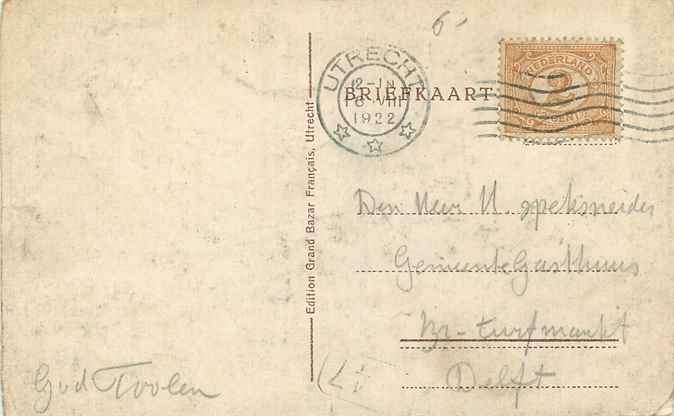 6-
UTRECHT
12-1N
18 VIII
1922
BRIEFKAART
NEDERLAND
2
CENT
Edition Grand Bazar Français, Utrecht
Den Heer H. Speksneider
Gemeente Gasthuis
Br-turfmarkt
Delft
God Toolen